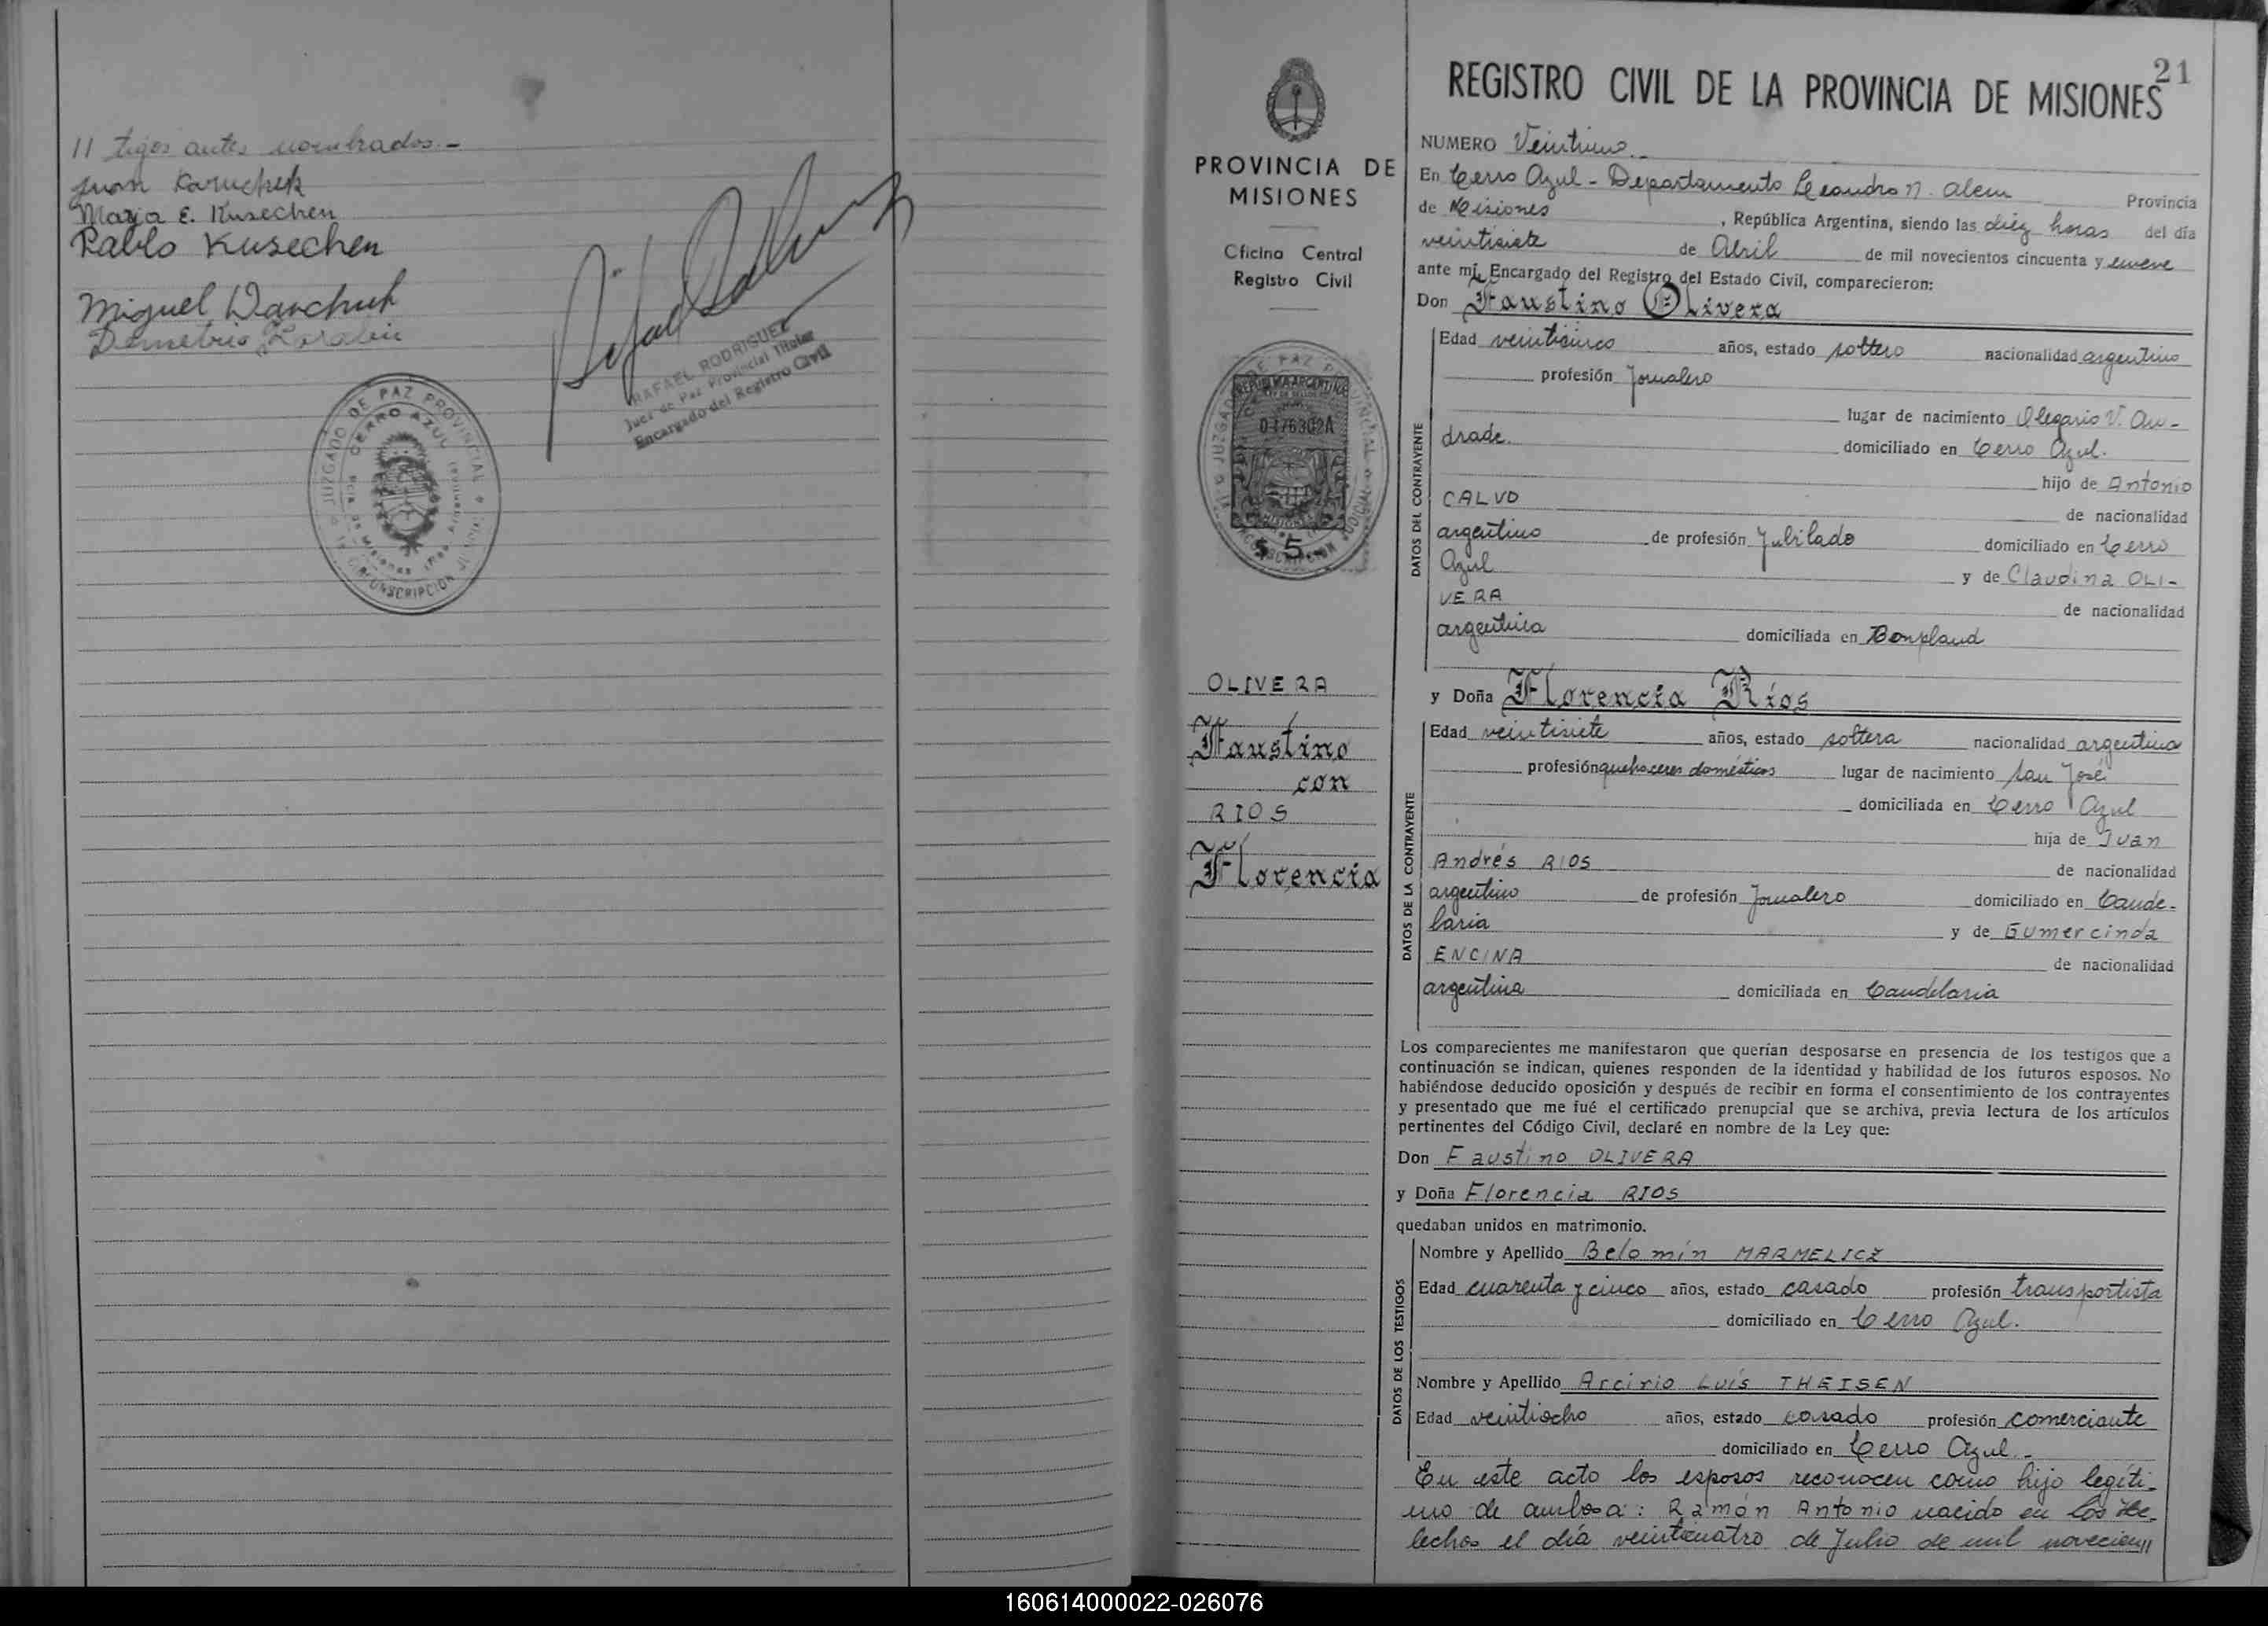 11 tigos antes nombrados.-
Juan Karuchek
Maria E. Kusechen
Pablo Kusechen
Miguel Wanchuk
Demetrio
RAFAEL RODRIGUEZ
Juez de Paz Provincial Titular
Encargado del Registro Civil
JUZGADO DE PAZ PROVINCIAL
CERRO AZUL
PROVINCIA DE
MISIONES
Oficina Central
Registro Civil
REPUBLICA ARGENTINA
0176302A
MISIONES
$ 5.-
OLIVERA
Faustino
con
RIOS
Florencia
21
REGISTRO CIVIL DE LA PROVINCIA DE MISIONES
NUMERO Veintiuno.
En Cerro Azul - Departamento Leandro N. Alem Provincia
de Misiones , República Argentina, siendo las diez horas del día
veintisiete de Abril de mil novecientos cincuenta y nueve
ante mí, Encargado del Registro del Estado Civil, comparecieron:
Don Faustino Olivera
DATOS DEL CONTRAYENTE
Edad veinticinco años, estado soltero nacionalidad argentino
profesión Jornalero
lugar de nacimiento Olegario V. An-
drade. domiciliado en Cerro Azul.
hijo de Antonio
CALVO de nacionalidad
argentino de profesión Jubilado domiciliado en Cerro
Azul y de Claudina OLI-
VERA de nacionalidad
argentina domiciliada en Bonpland
y Doña Florencia Ríos
DATOS DE LA CONTRAYENTE
Edad veintisiete años, estado soltera nacionalidad argentina
profesión quehaceres domésticos lugar de nacimiento San José
domiciliada en Cerro Azul
hija de Juan
Andrés RIOS de nacionalidad
argentino de profesión Jornalero domiciliado en Cande-
laria y de Gumercinda
ENCINA de nacionalidad
argentina domiciliada en Candelaria
Los comparecientes me manifestaron que querían desposarse en presencia de los testigos que a
continuación se indican, quienes responden de la identidad y habilidad de los futuros esposos. No
habiéndose deducido oposición y después de recibir en forma el consentimiento de los contrayentes
y presentado que me fué el certificado prenupcial que se archiva, previa lectura de los artículos
pertinentes del Código Civil, declaré en nombre de la Ley que:
Don Faustino OLIVERA
y Doña Florencia RIOS
quedaban unidos en matrimonio.
DATOS DE LOS TESTIGOS
Nombre y Apellido Belomín MARMELICZ
Edad cuarenta y cinco años, estado casado profesión transportista
domiciliado en Cerro Azul.
Nombre y Apellido Arcirio Luís THEISEN
Edad veintiocho años, estado casado profesión comerciante
domiciliado en Cerro Azul.-
En este acto los esposos reconocen como hijo legíti-
mo de ambos a: Ramón Antonio nacido en Los He-
lechos el día veinticuatro de Julio de mil novecien11
160614000022-026076